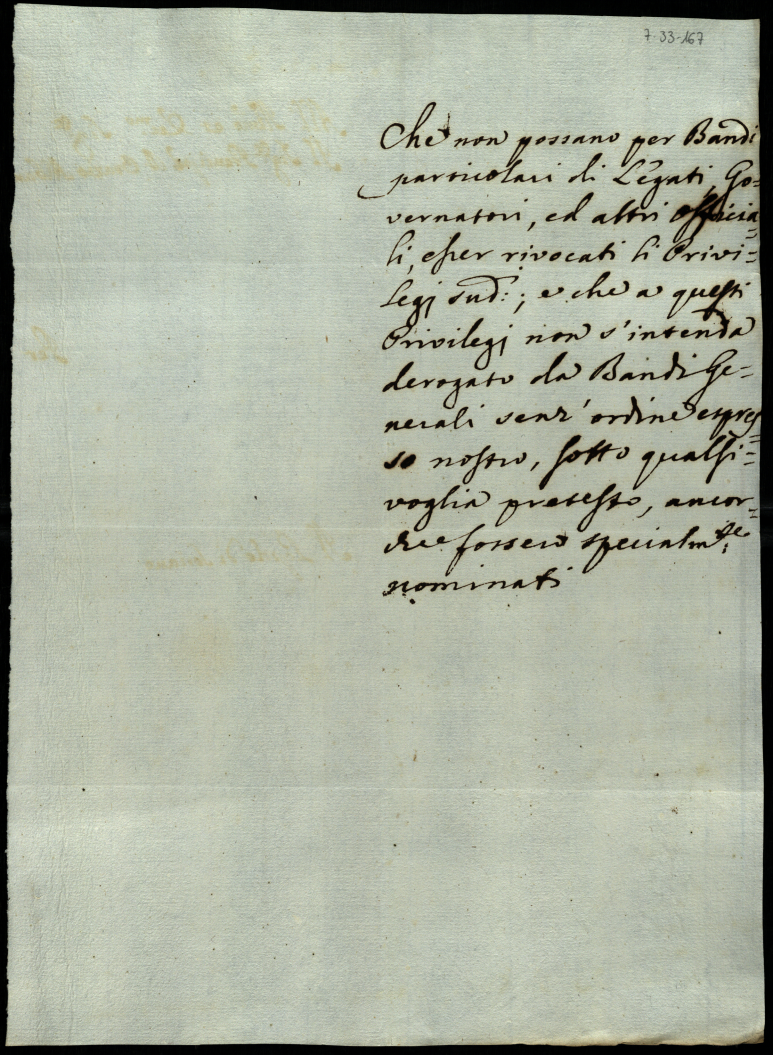 7-33-167
Che non possano per Bandi
particolari di Legati, Go=
vernatori, ed altri Officia=
li, esser rivocati li Privi=
legj sud:; e che a questi
Privilegj non s'intenda
derogato da Bandi Ge=
nerali senz'ordine espres=
so nostro, sotto qualsi=
voglia pretesto, ancor=
che fossero specialm:te
nominati